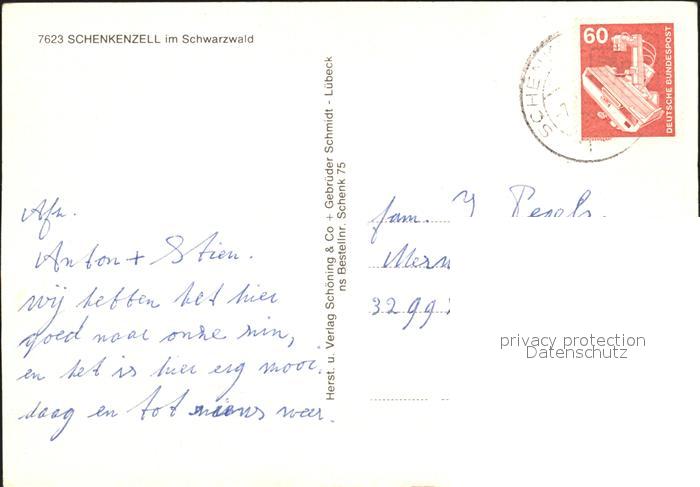 7623 SCHENKENZELL im Schwarzwald
60
DEUTSCHE BUNDESPOST
SCHEN
Herst. u. Verlag Schöning & Co + Gebrüder Schmidt - Lübeck
ns Bestellnr. Schenk 75
Afz.
Anton + Stien.
wij hebben het hier
goed naar onze zin,
en het is hier erg mooi.
daag en tot weer.
fam.
3299
privacy protection
Datenschutz